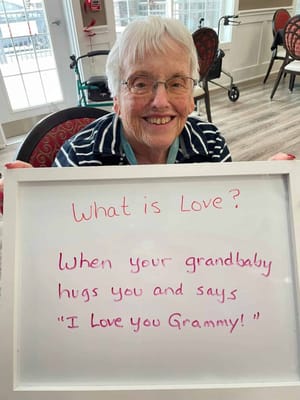 What is Love?
When your grandbaby
hugs you and says
"I Love you Grammy!"